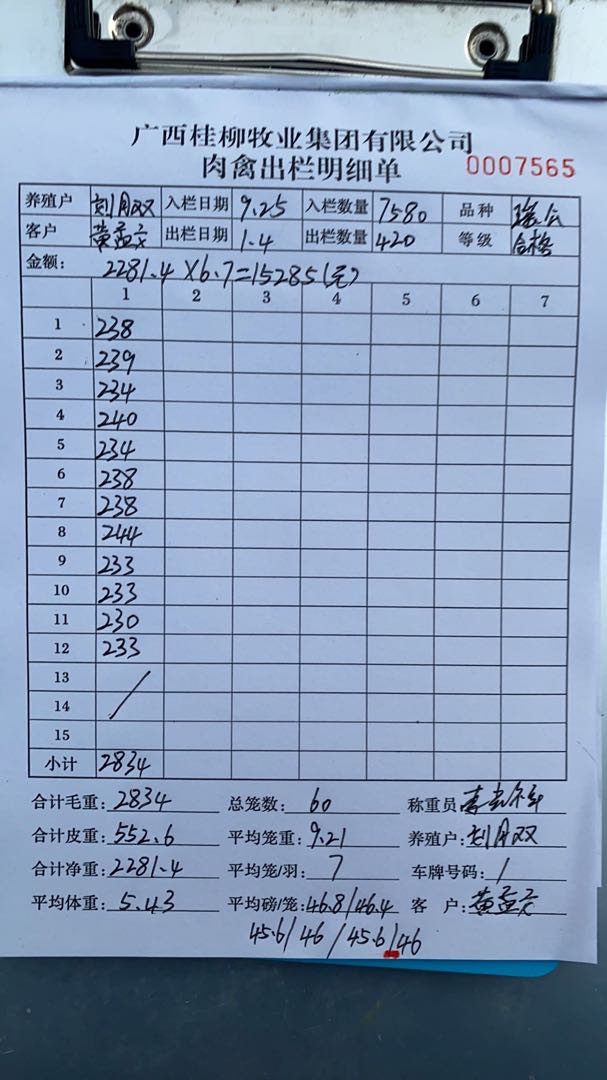 广西桂柳牧业集团有限公司
肉禽出栏明细单 0007565
养殖户 刘月双 入栏日期 9.25 入栏数量 7580 品种 瑶公
客户 黄孟 出栏日期 1.4 出栏数量 420 等级 合格
金额: 2281.4×6.7=15285(元)
1 2 3 4 5 6 7
1 238
2 239
3 234
4 240
5 234
6 238
7 238
8 244
9 233
10 233
11 230
12 233
13
14
15
小计 2834
合计毛重: 2834 总笼数: 60 称重员
合计皮重: 552.6 平均笼重: 9.21 养殖户: 刘月双
合计净重: 2281.4 平均笼/羽: 7 车牌号码: /
平均体重: 5.43 平均磅/笼: 46.8/46.4 客 户: 黄孟
45.6/46/45.6/46